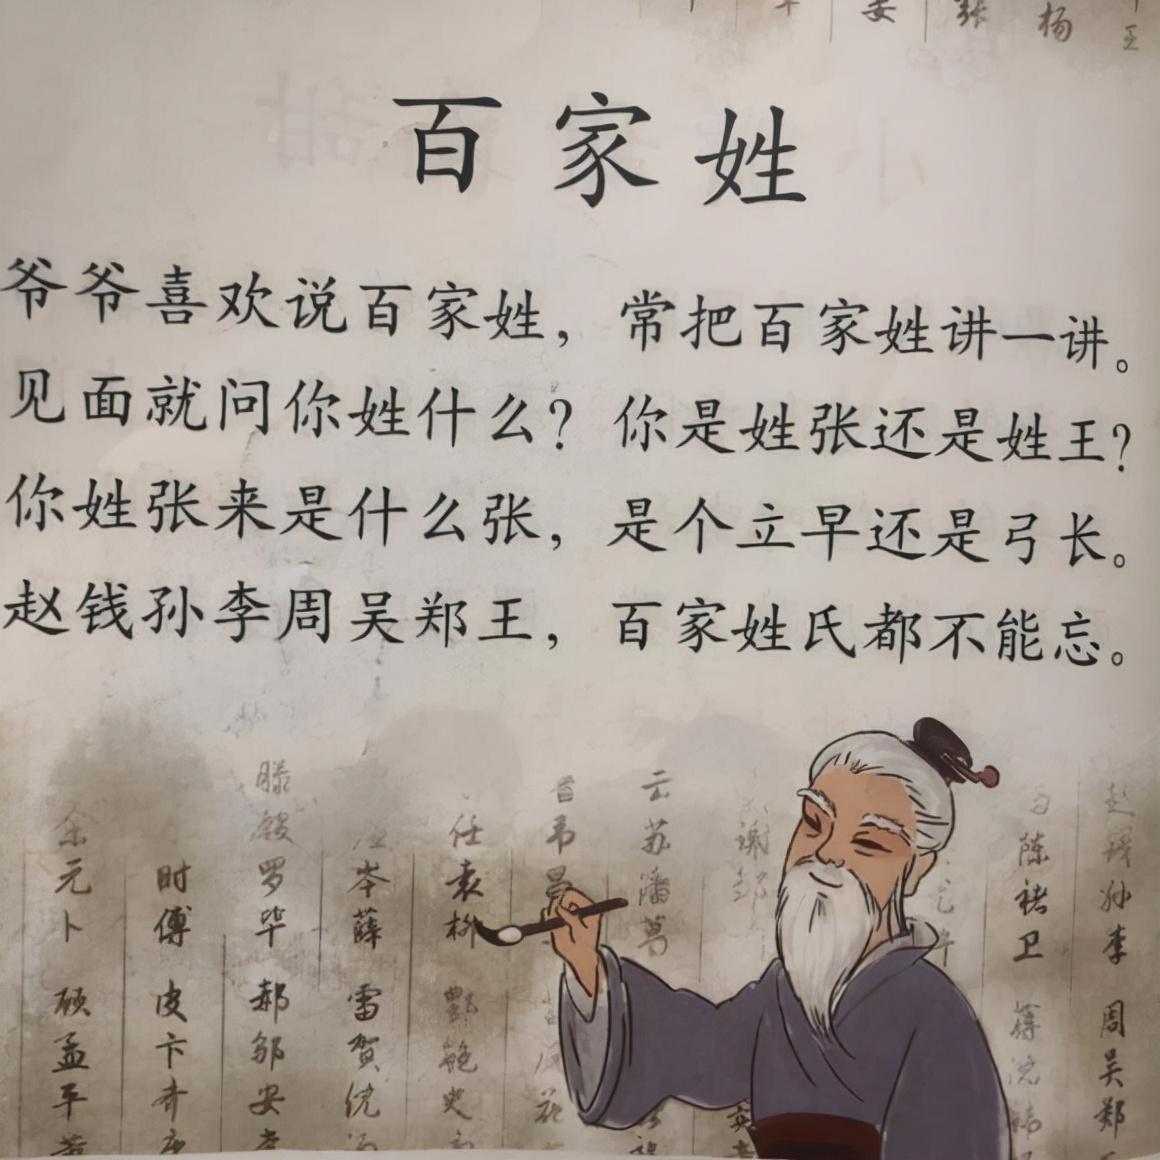 百家姓
爷爷喜欢说百家姓，常把百家姓讲一讲。
见面就问你姓什么？你是姓张还是姓王？
你姓张来是什么张，是个立早还是弓长。
赵钱孙李周吴郑王，百家姓氏都不能忘。
孙李
周吴郑
陈褚卫
云苏潘葛
任袁柳
岑薛
雷贺倪
滕殷罗毕
郝邬安
时傅
皮卞齐
余元卜
顾孟平